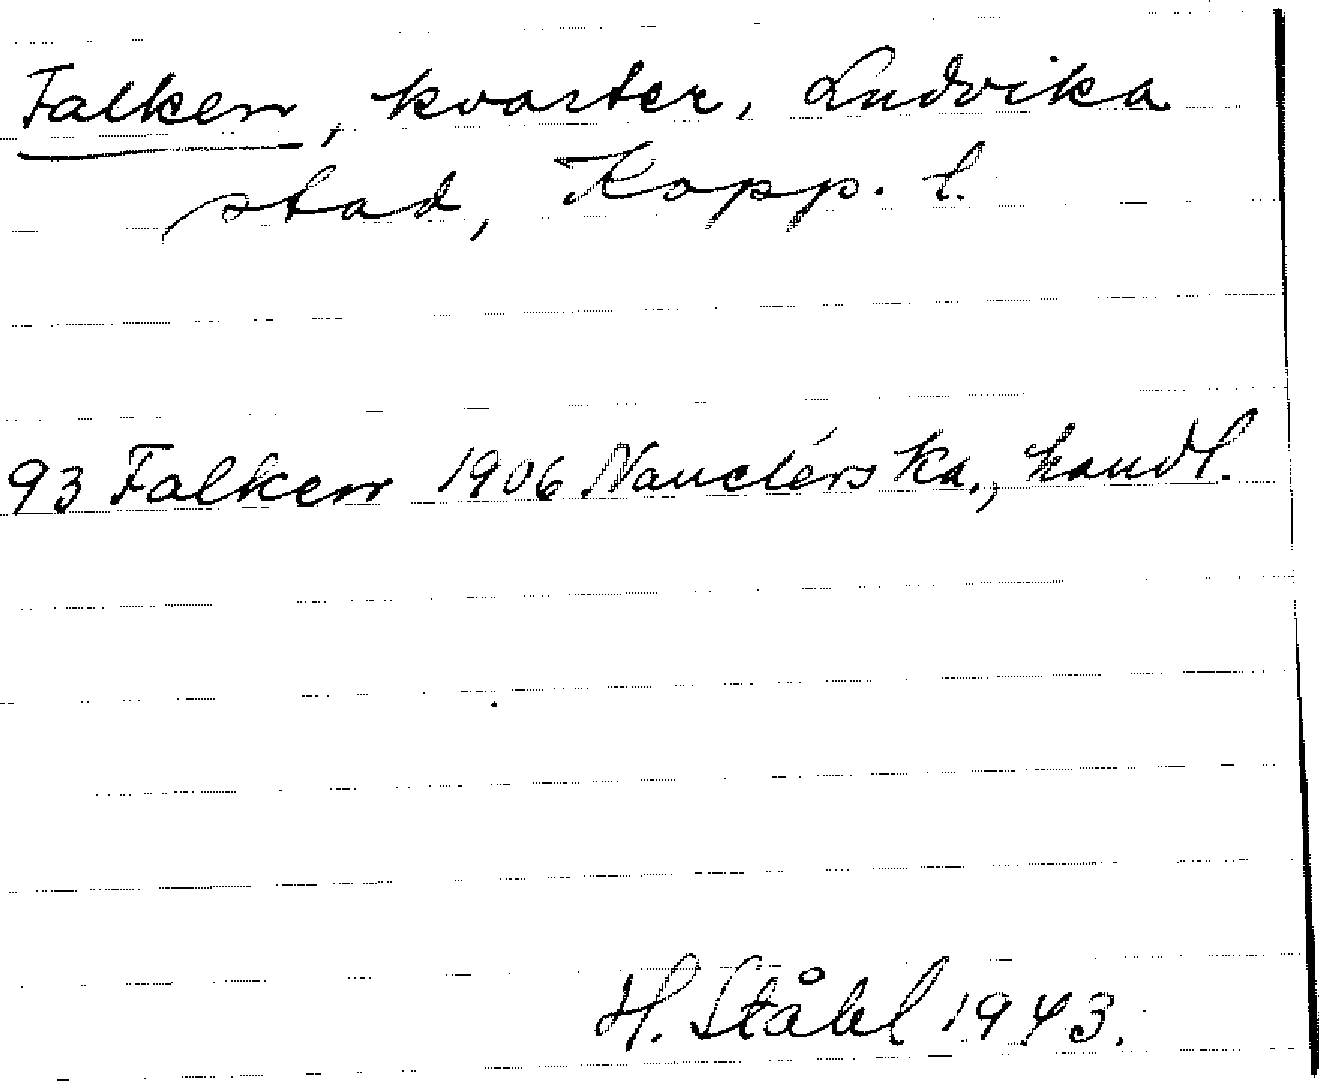 Falken, kvarter, Ludvika
stad, Kopp. l.
93 Falken 1906 Nauclérs ka., handl.
H. Ståhl 1943.